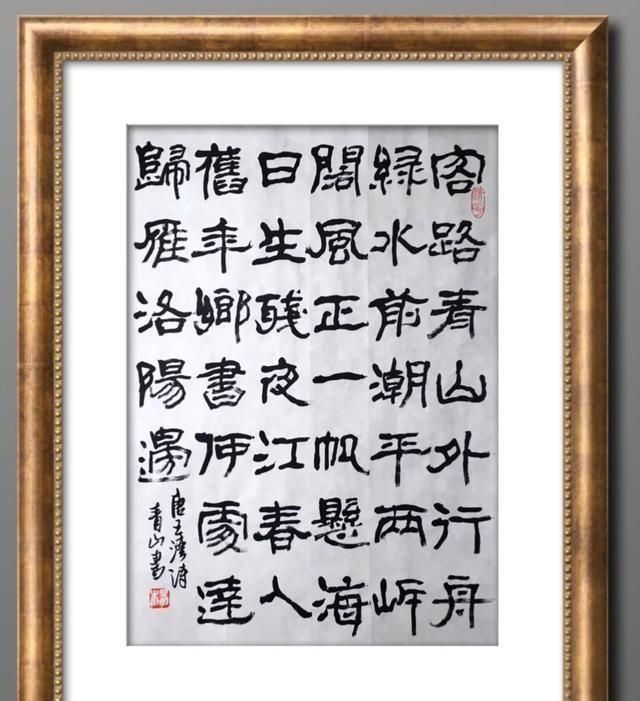 客路青山外行舟
綠水前潮平兩岸
闊風正一帆懸海
日生殘夜江春入
舊年鄉書何處達
歸雁洛陽邊
唐王灣詩
青山書